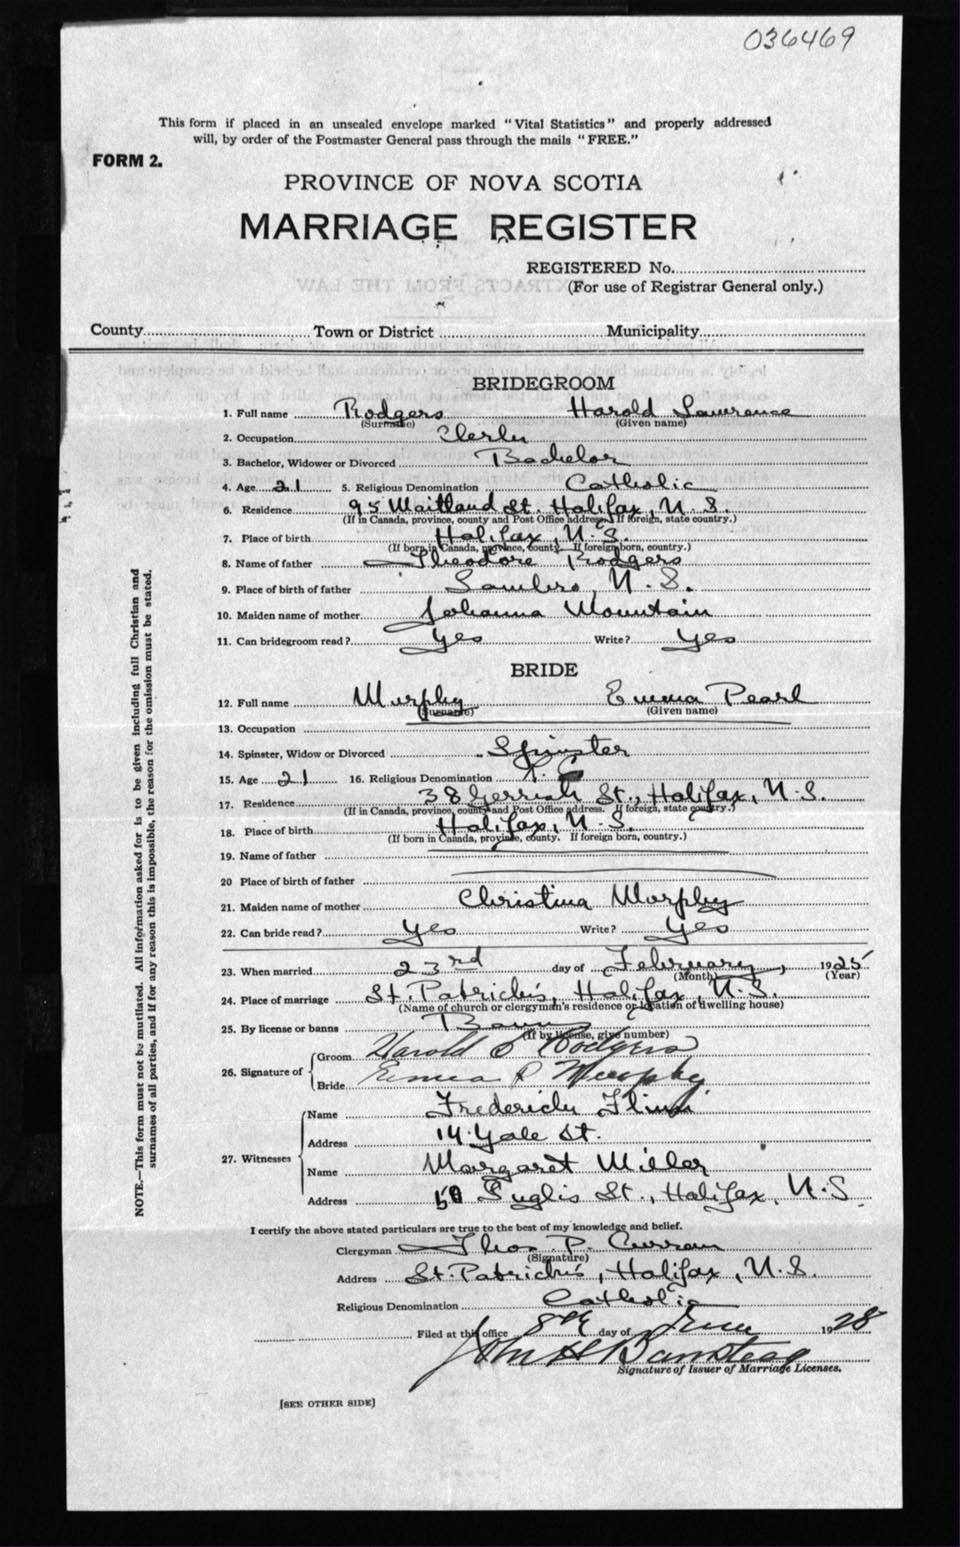 036469
This form if placed in an unsealed envelope marked "Vital Statistics" and properly addressed
will, by order of the Postmaster General pass through the mails "FREE."
FORM 2.
PROVINCE OF NOVA SCOTIA
MARRIAGE REGISTER
REGISTERED No.
(For use of Registrar General only.)
County Town or District Municipality
BRIDEGROOM
1. Full name Rodgers Harold Lawrence
(Surname) (Given name)
2. Occupation Clerk
3. Bachelor, Widower or Divorced Bachelor
4. Age 21 5. Religious Denomination Catholic
6. Residence 95 Maitland St. Halifax, N. S.
(If in Canada, province, county and Post Office address. If foreign, state country.)
7. Place of birth Halifax, N. S.
(If born in Canada, province, county. If foreign born, country.)
8. Name of father Theodore Rodgers
9. Place of birth of father Sambro, N. S.
10. Maiden name of mother Johanna Mountain
11. Can bridegroom read? Yes Write? Yes
BRIDE
12. Full name Murphy Emma Pearl
(Surname) (Given name)
13. Occupation
14. Spinster, Widow or Divorced Spinster
15. Age 21 16. Religious Denomination R. C
17. Residence 38 Gerrish St., Halifax, N. S.
(If in Canada, province, county and Post Office address. If foreign, state country.)
18. Place of birth Halifax, N. S.
(If born in Canada, province, county. If foreign born, country.)
19. Name of father
20 Place of birth of father
21. Maiden name of mother Christina Murphy
22. Can bride read? Yes Write? Yes
23. When married 23rd day of February, 1925
(Month) (Year)
24. Place of marriage St. Patrick's, Halifax, N. S.
(Name of church or clergyman's residence or location of dwelling house)
25. By license or banns
(If by license, give number)
26. Signature of Groom Harold L Rodgers
Bride Emma P Murphy
27. Witnesses
Name Frederick
Address 14 Yale St.
Name Margaret Miller
Address St., Halifax, N. S
I certify the above stated particulars are true to the best of my knowledge and belief.
Clergyman Thos. P. Curran
(Signature)
Address St. Patrick's, Halifax, N. S.
Religious Denomination Catholic
Filed at this office 8th day of June 1928
John H Barnstead
Signature of Issuer of Marriage Licenses.
[SEE OTHER SIDE]
NOTE.—This form must not be mutilated. All information asked for is to be given including full Christian and
surnames of all parties, and if for any reason this is impossible, the reason for the omission must be stated.